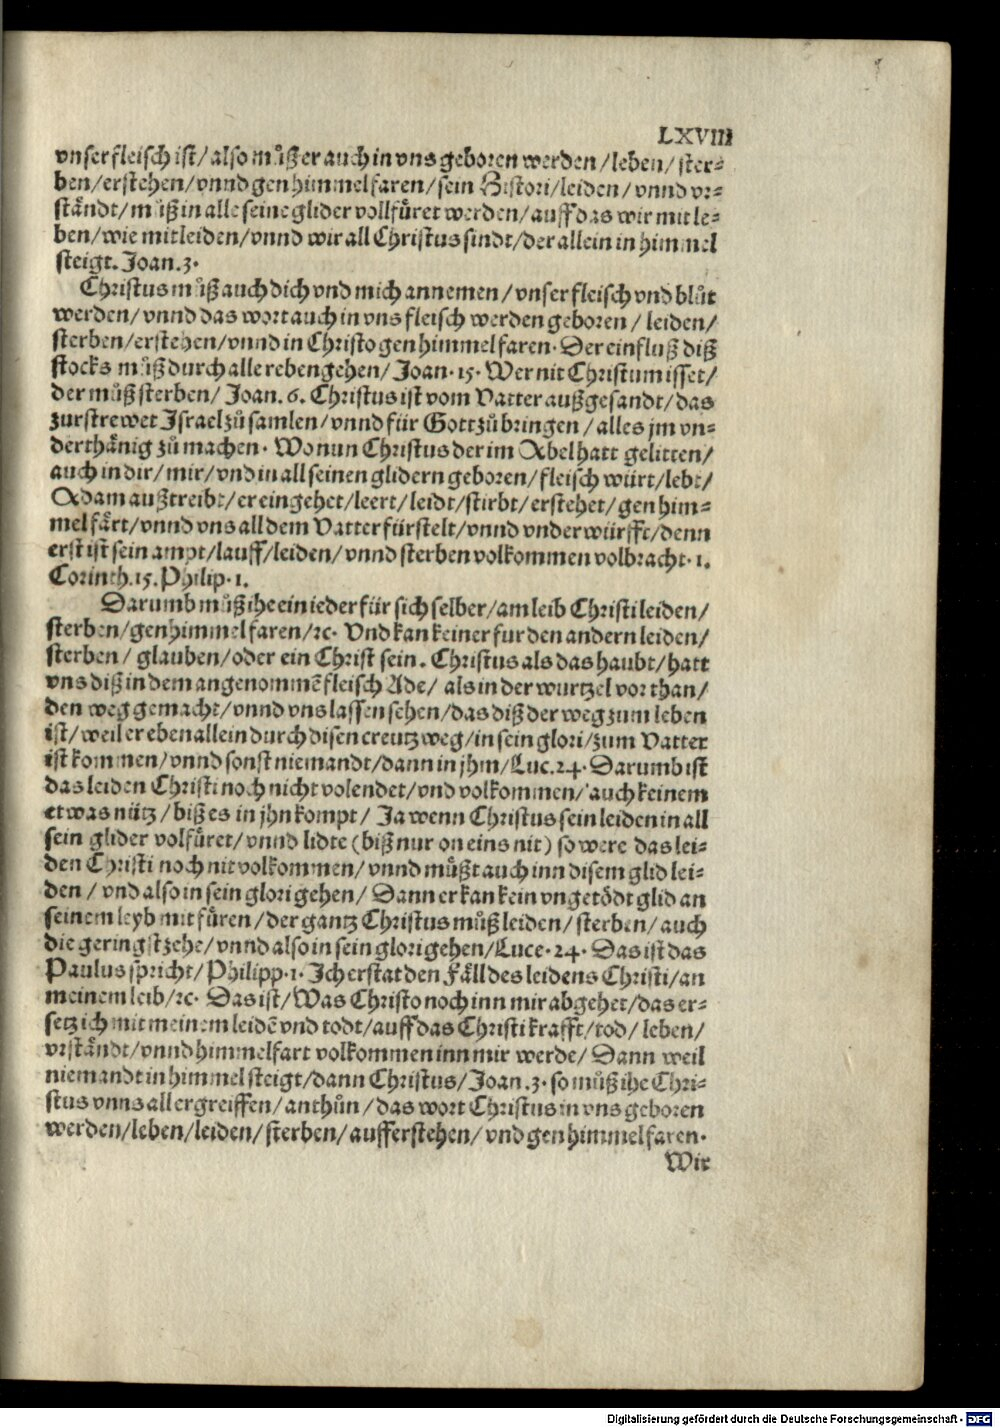 LXVIII
vnser fleisch ist/ also můß er auch in vns geboren werden/ leben/ ster-
ben/ erstehen/ vnnd gen himmel faren/ sein Histori/ leiden/ vnnd vr-
ständt/ můß in alle seine glider vollfüret werden/ auff das wir mit le-
ben/ wie mit leiden/ vnnd wir all Christus sindt/ der allein in himmel
steigt. Joan. 3.
Christus můß auch dich vnd mich annemen/ vnser fleisch vnd blůt
werden/ vnnd das wort auch in vns fleisch werden geboren/ leiden/
sterben/ erstehen/ vnnd in Christo gen himmel faren. Der einfluß diß
stocks můß durch alle reben gehen/ Joan. 15. Wer nit Christum isset/
der můß sterben/ Joan. 6. Christus ist vom Vatter außgesandt/ das
zurstrewet Israel zů samlen/ vnnd für Gott zů bringen/ alles jm vn-
derthänig zů machen. Wo nun Christus der im Abel hatt gelitten/
auch in dir/ mir/ vnd in all seinen glidern geboren/ fleisch würt/ lebt/
Adam außtreibt/ er eingehet/ leert/ leidt/ stirbt/ erstehet/ gen him-
mel färt/ vnnd vns all dem Vatter fürstelt/ vnnd vnderwürfft/ denn
erst ist sein ampt/ lauff/ leiden/ vnnd sterben volkommen volbracht. 1.
Corinth. 15. Philip. 1.
Darumb můß ihe ein ieder für sich selber/ am leib Christi leiden/
sterben/ gen himmel faren/ ꝛc. Vnd kan keiner fur den andern leiden/
sterben/ glauben/ oder ein Christ sein. Christus als das haubt/ hatt
vns diß in dem angenommē fleisch Ade/ als in der wurtzel vor than/
den weg gemacht/ vnnd vns lassen sehen/ das diß der weg zum leben
ist/ weil er eben allein durch disen creutzweg/ in sein glori/ zum Vatter
ist kommen/ vnnd sonst niemandt/ dann in jhm/ Luc. 24. Darumb ist
das leiden Christi noch nicht volendet/ vnd volkommen/ auch keinem
etwas nütz/ biß es in jhn kompt/ Ja wenn Christus sein leiden in all
sein glider volfüret/ vnnd lidte (biß nur on eins nit) so were das lei-
den Christi noch nit volkommen/ vnnd můßt auch inn disem glid lei-
den/ vnd also in sein glori gehen/ Dann er kan kein vngetödt glid an
seinem leyb mit füren/ der gantz Christus můß leiden/ sterben/ auch
die geringst zehe/ vnnd also in sein glori gehen/ Luce. 24. Das ist das
Paulus spricht/ Philipp. 1. Ich erstat den Fäll des leidens Christi/ an
meinem leib/ ꝛc. Das ist/ Was Christo noch inn mir abgehet/ das er-
setz ich mit meinem leidē vnd todt/ auff das Christi krafft/ tod/ leben/
vrständt/ vnnd himmelfart volkommen inn mir werde/ Dann weil
niemandt in himmel steigt/ dann Christus/ Joan. 3. so můß ihe Chri-
stus vnns all ergreiffen/ anthůn/ das wort Christus in vns geboren
werden/ leben/ leiden/ sterben/ aufferstehen/ vnd gen himmel faren.
Wir
Digitalisierung gefördert durch die Deutsche Forschungsgemeinschaft - DFG